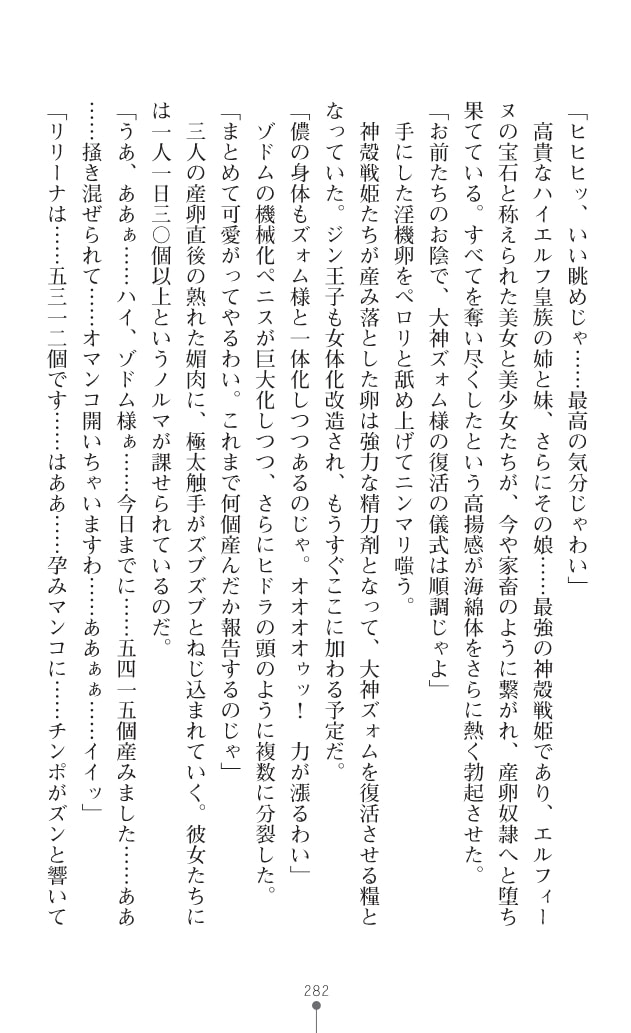 「ヒヒヒッ、いい眺めじゃ……最高の気分じゃわい」
高貴なハイエルフ皇族の姉と妹、さらにその娘……最強の神殻戦姫であり、エルフィー
ヌの宝石と称えられた美女と美少女たちが、今や家畜のように繋がれ、産卵奴隷へと堕ち
果てている。すべてを奪い尽くしたという高揚感が海綿体をさらに熱く勃起させた。
「お前たちのお陰で、大神ズォム様の復活の儀式は順調じゃよ」
手にした淫機卵をペロリと舐め上げてニンマリ嗤う。
神殻戦姫たちが産み落とした卵は強力な精力剤となって、大神ズォムを復活させる糧と
なっていた。ジン王子も女体化改造され、もうすぐここに加わる予定だ。
「儂の身体もズォム様と一体化しつつあるのじゃ。オオオオゥッ！　力が漲るわい」
ゾドムの機械化ペニスが巨大化しつつ、さらにヒドラの頭のように複数に分裂した。
「まとめて可愛がってやるわい。これまで何個産んだか報告するのじゃ」
三人の産卵直後の熟れた媚肉に、極太触手がズブズブとねじ込まれていく。彼女たちに
は一人一日三〇個以上というノルマが課せられているのだ。
「うあ、ああぁ……ハイ、ゾドム様ぁ……今日までに……五四一五個産みました……ああ
……掻き混ぜられて……オマンコ開いちゃいますわ……ああぁぁ……イイッ」
「リリーナは……五三一二個です……はああ……孕みマンコに……チンポがズンと響いて
282